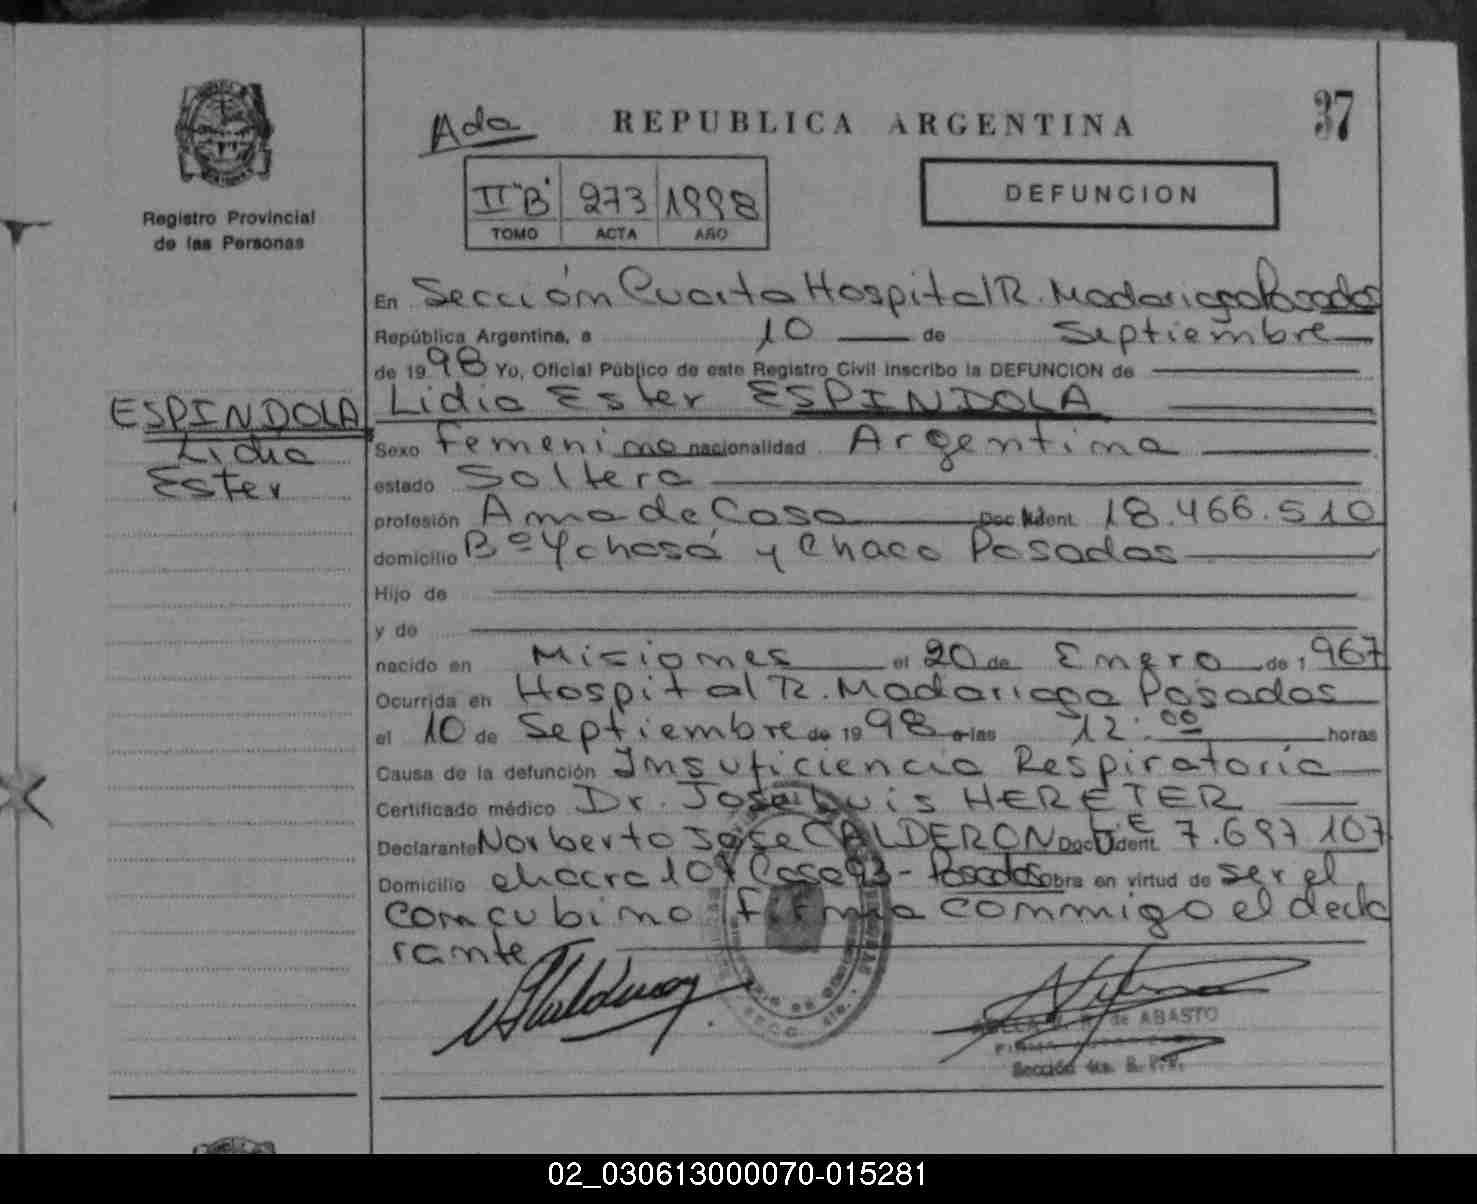 37
Ada
REPUBLICA ARGENTINA
II "B" 273 1998
TOMO ACTA AÑO
DEFUNCION
Registro Provincial
de las Personas
ESPINDOLA
Lidia
Ester
En Sección Cuarta Hospital R. Madariaga Posadas
República Argentina, a 10 de Septiembre
de 1998 Yo, Oficial Público de este Registro Civil inscribo la DEFUNCION de
Lidia Ester ESPINDOLA
Sexo femenino nacionalidad Argentina
estado Soltera
profesión Ama de Casa Doc. Ident. 18.466.510
domicilio Bº Ychasá y Chaco Posadas
Hijo de
y de
nacido en Misiones el 20 de Enero de 1967
Ocurrida en Hospital R. Madariaga Posadas
el 10 de Septiembre de 1998 a las 12:00 horas
Causa de la defunción Insuficiencia Respiratoria
Certificado médico Dr. José Luis HERETER
Declarante Norberto Jose CALDERON Doc. Ident. L.E 7.697.107
Domicilio chacra 107 Casa 93 - Posadas obra en virtud de ser el
concubino firma conmigo el decla
rante
de ABASTO
Sección 4ta. R. P. P.
02_030613000070-015281